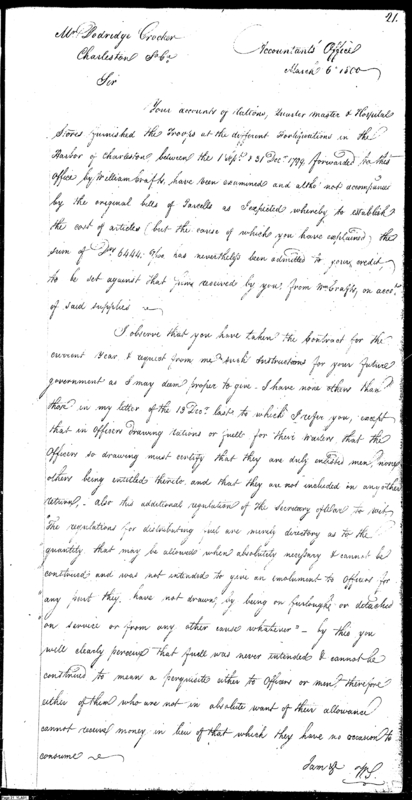 21.
Mr Dodridge Crocker
Accountants' Office
Charleston So Ca
March 6th 1800
Sir
Your accounts of Rations, Quarter master & Hospital
Stores furnished the Troops at the different Fortifications in the
Harbor of Charleston between the 1 Sept. & 31 Decr. 1799, forwarded to this
Office by William Crafts, have been examined and altho' not accompanied
by the original bills of Parcells as I expected whereby to establish
the cost of articles (but the cause of which you have explained) the
sum of 6444. has nevertheless been admitted to your credit,
to be set against that sum received by you from Wm Crafts, on acct.
of said supplies
I observe that you have taken the Contract for the
current Year & request from me such Instructions for your future
government as I may deem proper to give. I have none others than
those in my letter of the 13 Decr. last to which I refer you, except
that in Officers drawing rations or fuell for their Waiters that the
Officers so drawing must certify that they are duly enlisted men, none
others being entitled thereto, and that they are not included on any other
return. - also this additional regulation of the Secretary of War to wit
"The regulations for distributing fuel are merely directory as to the
quantity that may be allowed when absolutely necessary & cannot be
construed and was not intended to give an emolument to Officers for
"any part they have not drawn, by being on furlough or detached
on service or from any other cause whatever" - by this you
will clearly perceive that fuell was never intended & cannot be
construed to mean a perquisite either to Officers or men therefore
either of them who are not in absolute want of their allowance
cannot receive money in lieu of that which they have no occasion to
consume
I am &c
WS.